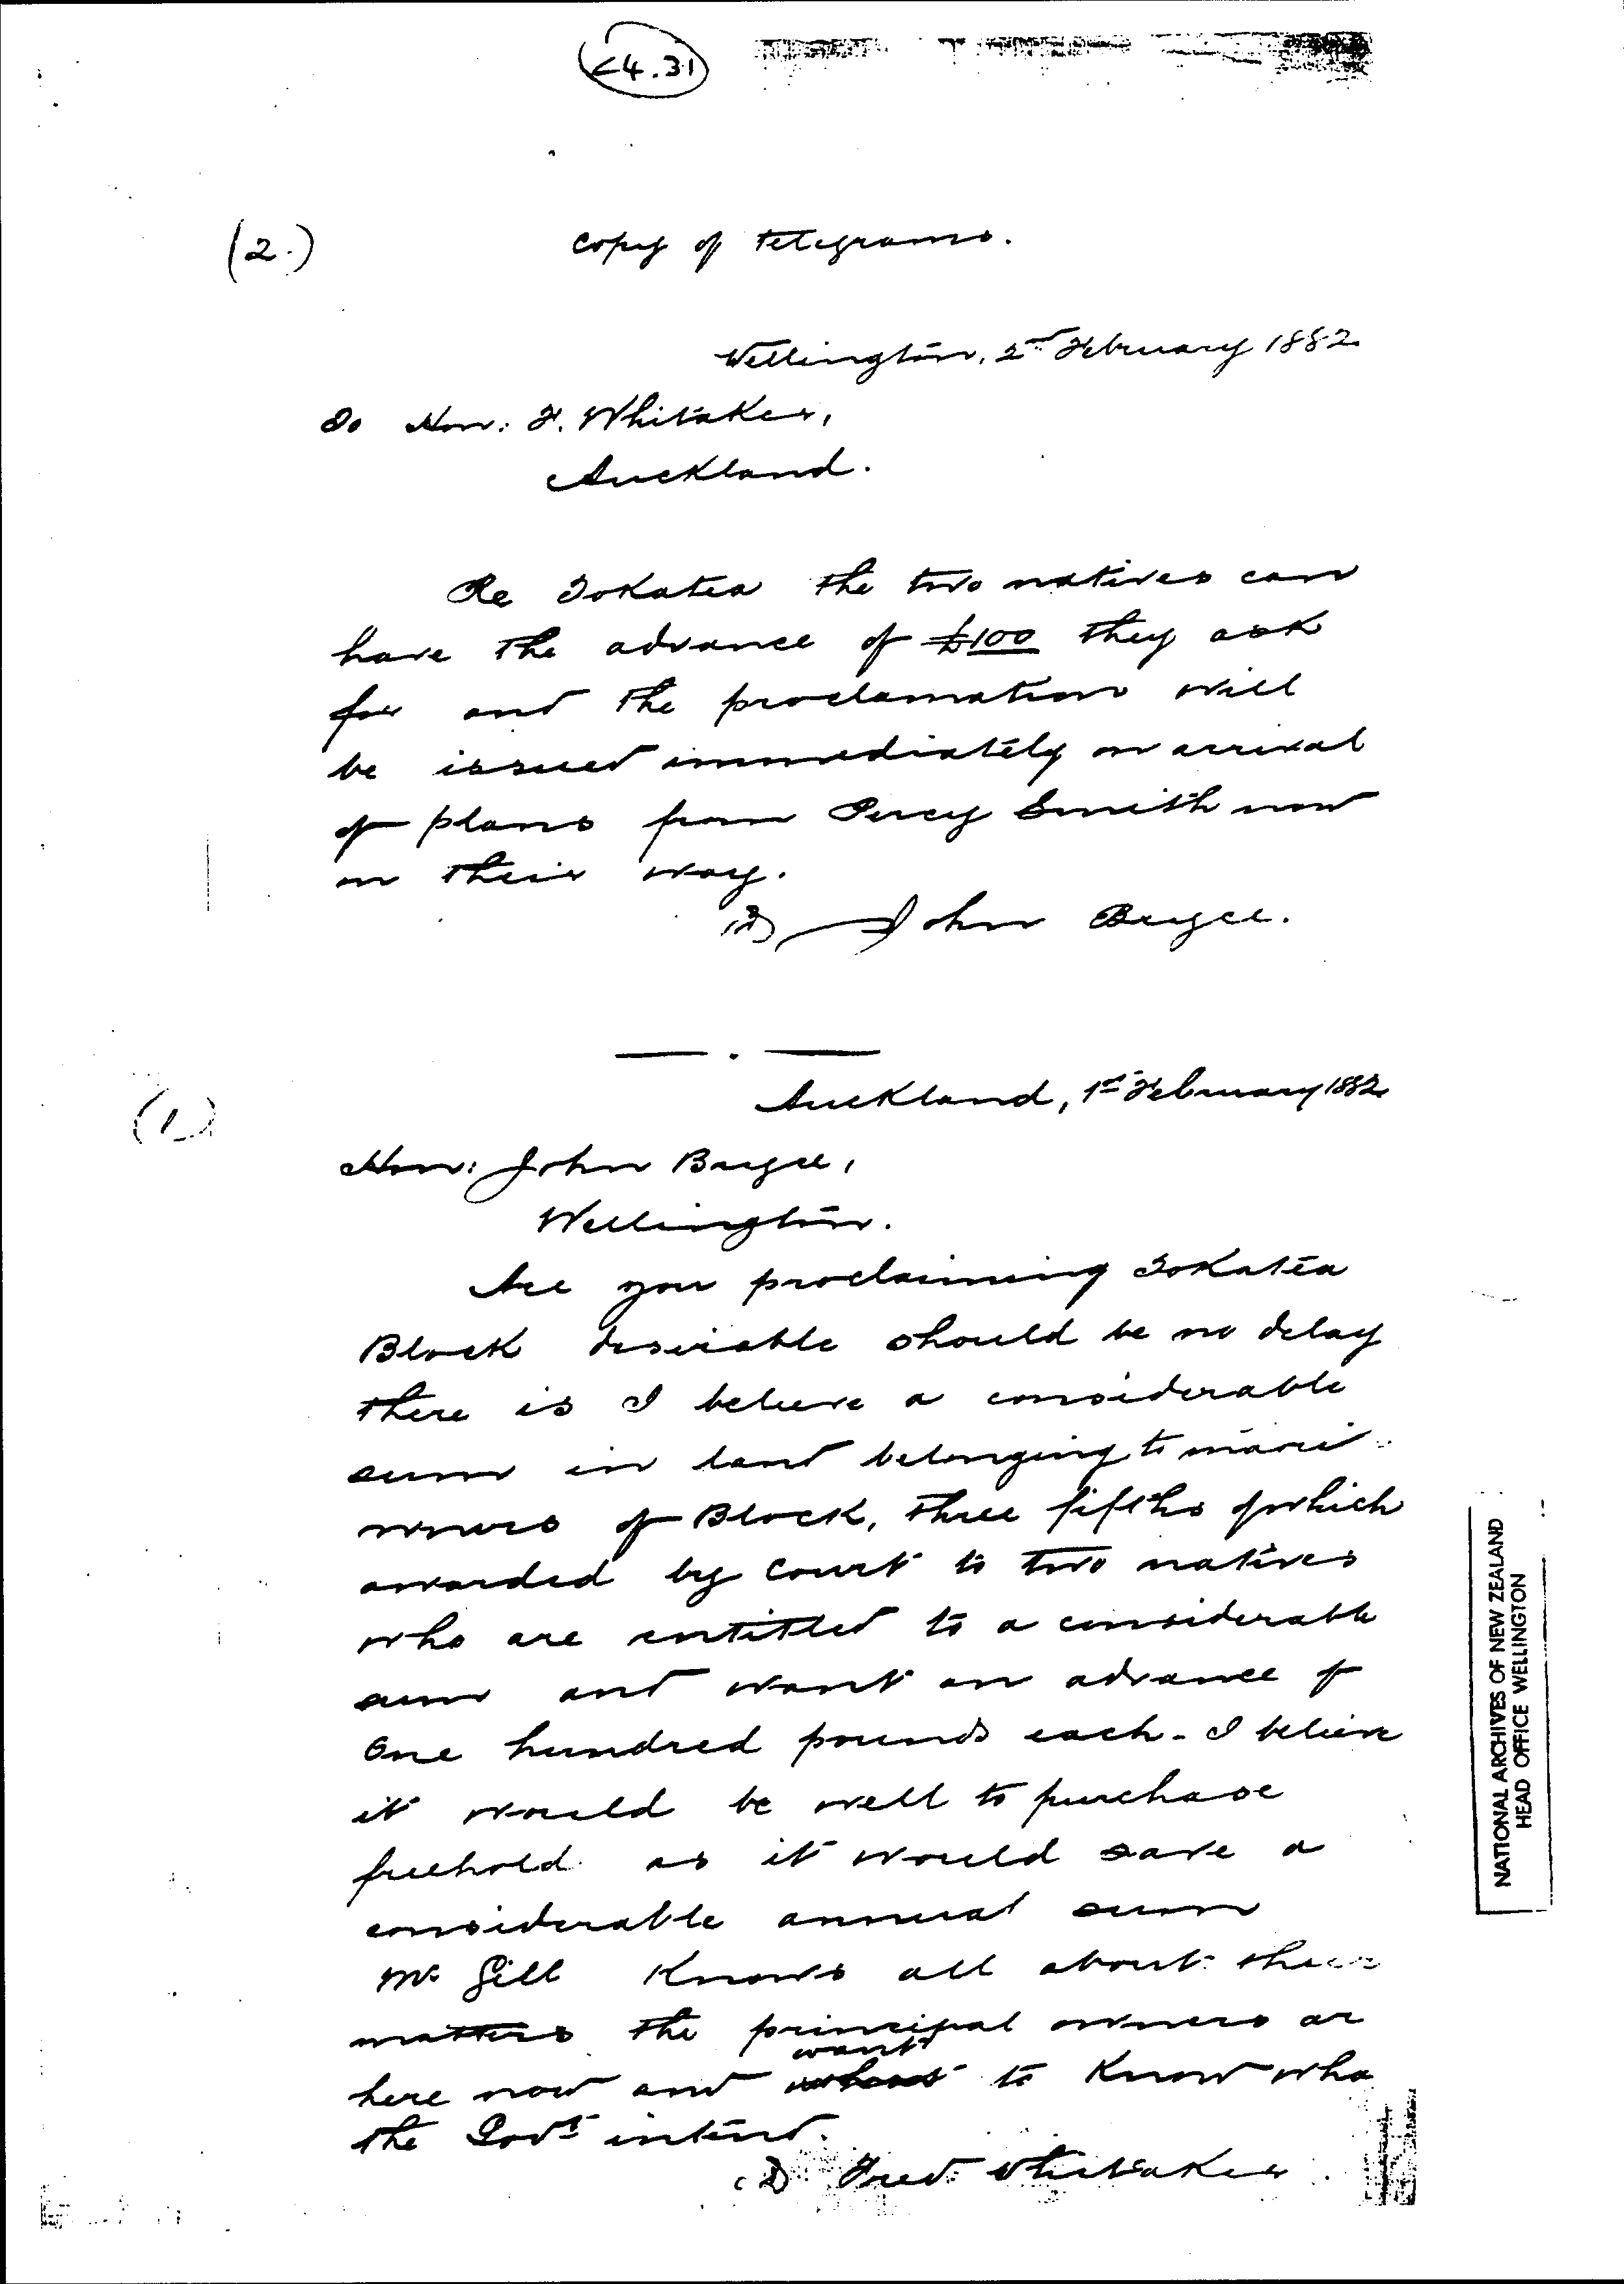 C4.31
(2.)
Copy of telegrams.
Wellington, 2nd February 1882
To Hon: F. Whitaker,
Auckland.
Re Tokatea the two natives can
have the advance of £100 they ask
for and the proclamation will
be issued immediately on arrival
of plans from Percy Smith now
on their way.
(sd) John Bryce.
(1)
Auckland, 1st February 1882
Hon: John Bryce,
Wellington.
Are you proclaiming Tokatea
Block desirable should be no delay
there is I believe a considerable
sum in land belonging to maori
owners of Block, three fifths of which
awarded by Court to two natives
who are entitled to a considerable
sum and want an advance of
One hundred pounds each - I believe
it would be well to purchase
freehold as it would save a
considerable annual sum
Mr Gill Knows all about these
matters the principal owners are
want
here now and to Know wha
the Govt intend.
(sd) Fred: Whitaker
NATIONAL ARCHIVES OF NEW ZEALAND
HEAD OFFICE WELLINGTON